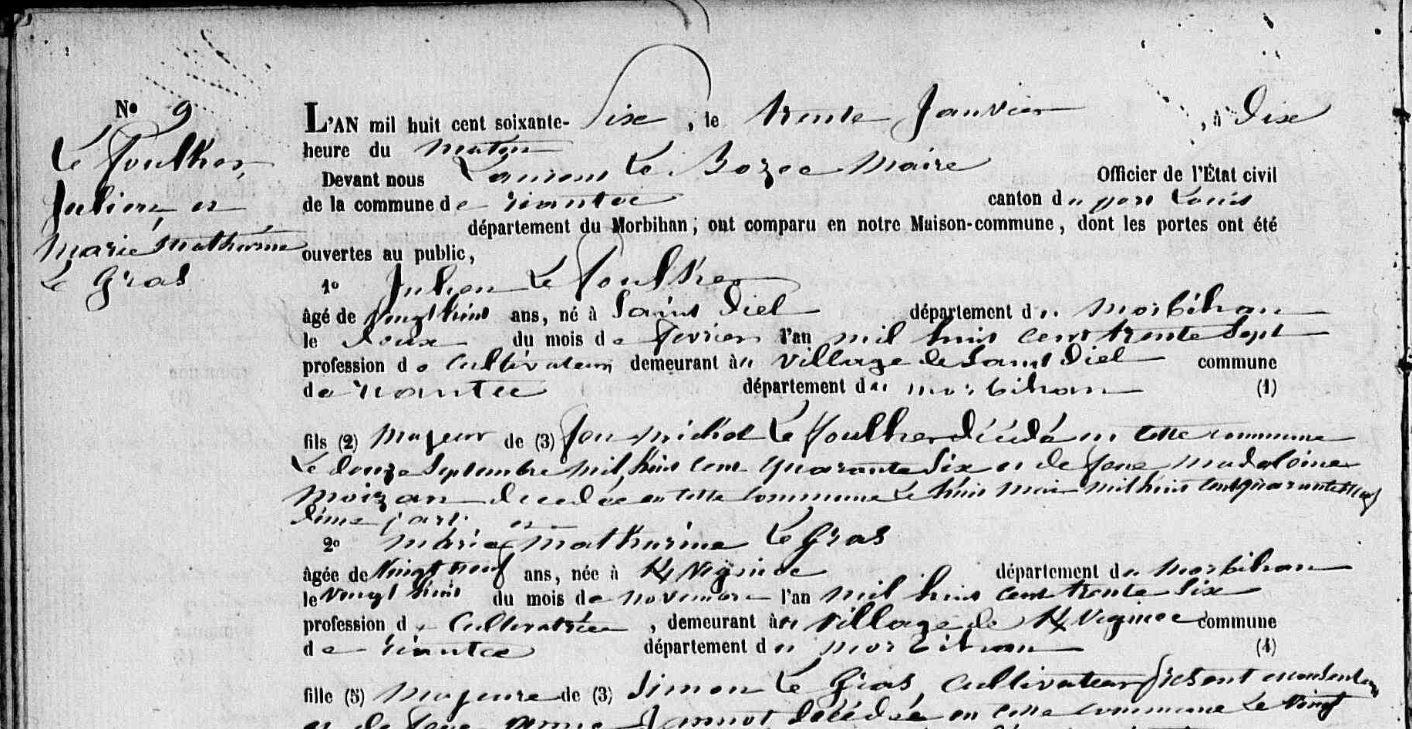 No 9
Le Foulher
Julien et
Marie Mathurine
Le Gras
L'AN mil huit cent soixante- Six , le trente Janvier , à Dix
heure du matin
Devant nous Laurent Le Bozec Maire Officier de l'État civil
de la commune de riantec canton du port Louis
département du Morbihan ; ont comparu en notre Maison-commune , dont les portes ont été
ouvertes au public,
1o Julien Le Foulher
âgé de vingt huit ans, né à Saint Diel département du morbihan
le Deux du mois de fevrier l'an mil huit cent trente Sept
profession de Cultivateur demeurant au village de Saint Diel commune
de riantec département du morbihan (1)
fils (2) Majeur de (3) feu michel Le Foulher décédé en cette commune
Le douze Septembre mil huit cent quarante Six et de feue madeleine
Moizan decedée en cette commune Le huit mil huit cent quarante
D'une part et
2o Marie Mathurine Le Gras
âgée de Vingt neuf ans, née à département du Morbihan
le vingt huit du mois de novembre l'an mil huit cent trente Six
profession de Cultivatrice , demeurant au village de commune
de riantec département du morbihan (4)
fille (5) Majeure de (3) Simon Le Gras, Cultivateur présent et consentant
et de feue anne décédée en cette commune Le vingt